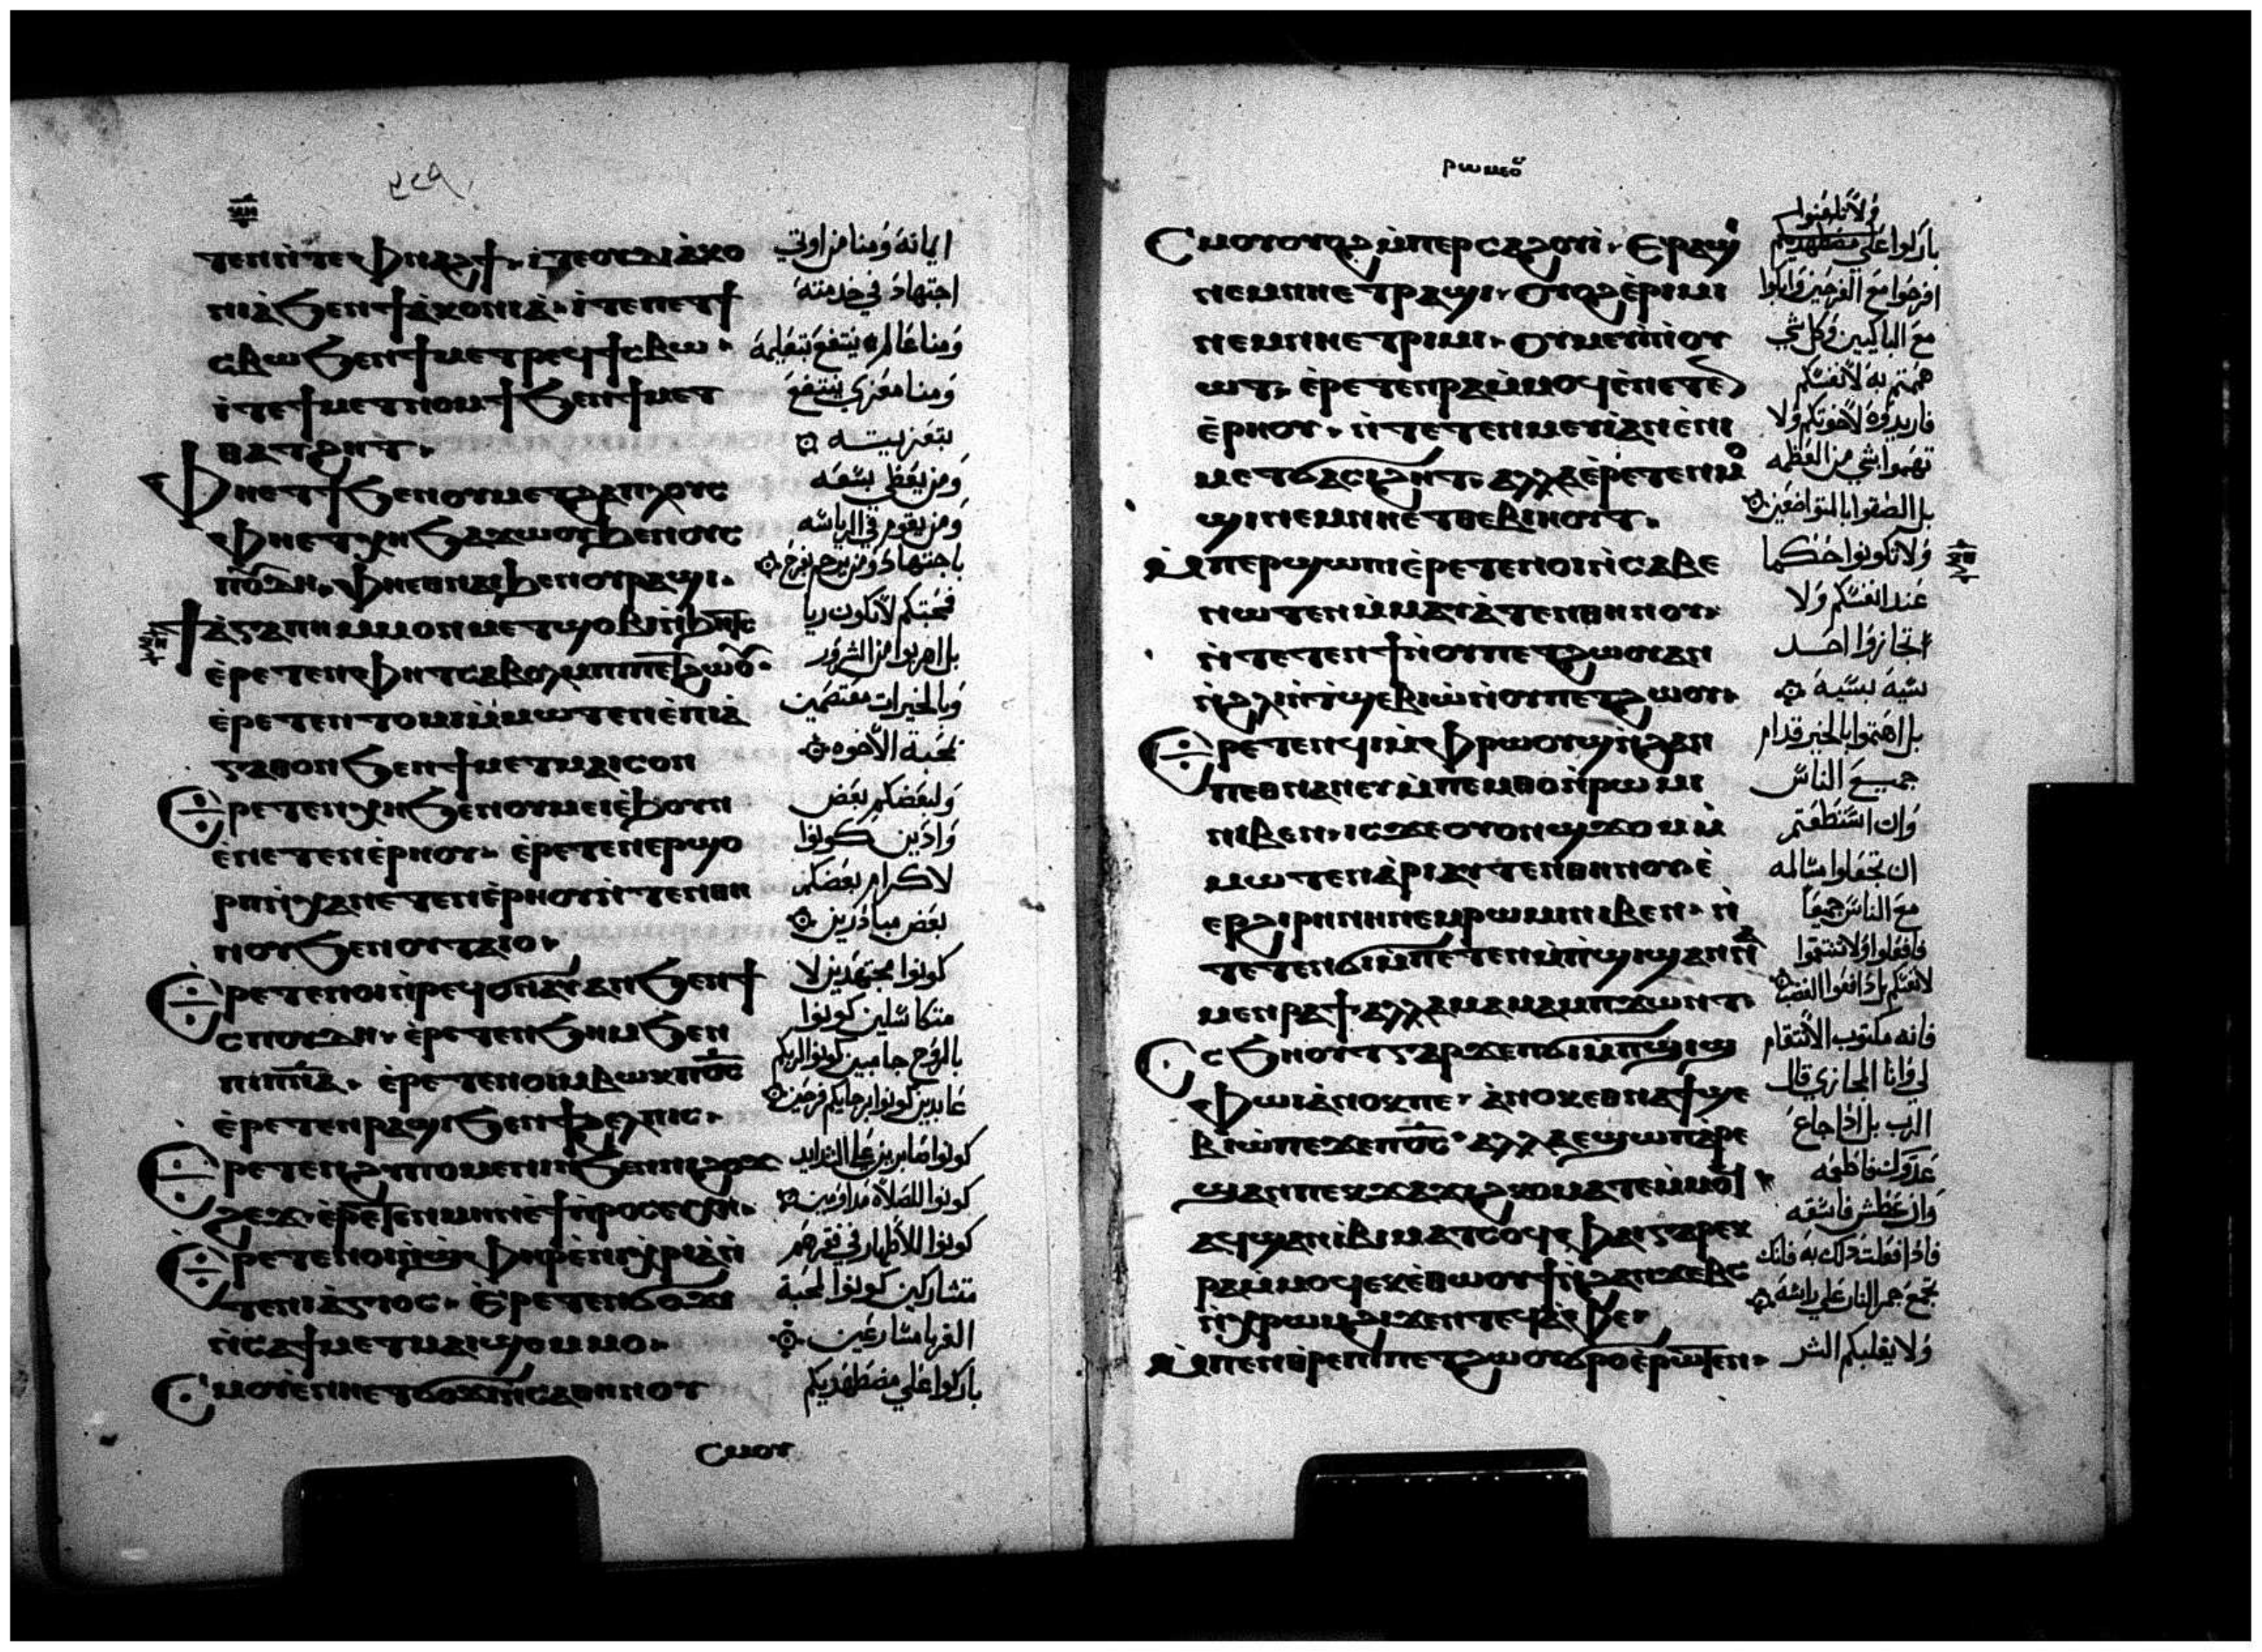 ⲧⲉⲛⲛ̀ⲧⲉⲫⲛⲁϩϯ· ⲓ̀ⲧⲉⲟⲩⲇⲓⲁ̀ⲕⲟ
ⲛⲓⲁ̀ϧⲉⲛϯⲁ̀ⲕⲟⲛⲓⲁ̀· ⲓ̀ⲧⲉⲡⲉⲧϯ
ⲥⲃⲱϧⲉⲛϯⲙⲉⲧⲣⲉϥϯⲥⲃⲱ·
ⲓ̀ⲧⲉϯⲙⲉⲧⲛⲟⲙϯϧⲉⲛϯⲙⲉⲧ
ⲑⲁⲧϩⲏⲧ·
ⲫⲏⲉⲧϯϧⲉⲛⲟⲩⲙⲉⲧϩⲁⲡⲗⲟⲩⲥ
ⲫⲏⲉⲧⲭⲏϧⲁϫⲱⲟⲩϧⲉⲛⲟⲩⲥ
ⲡⲟⲩⲇⲏ· ⲫⲏⲉⲑⲛⲁⲓϧⲉⲛⲟⲩⲣⲁϣⲓ·
ϯⲁ̀ⲅⲁⲡⲏⲙⲙⲟⲛⲙⲉⲧϣⲟⲃⲓⲛ̀ϧⲏⲧⲥ
ⲉ̀ⲣⲉⲧⲉⲛⲫⲏⲧⲥⲁⲃⲟⲗⲙⲡⲓⲡⲉⲧϩⲱⲟⲩ·
ⲉ̀ⲣⲉⲧⲉⲛⲧⲟⲙⲓⲙ̀ⲙⲱⲧⲉⲛⲉ̀ⲡⲓⲁ̀
ⲅⲁⲑⲟⲛϧⲉⲛϯⲙⲉⲧⲙⲁⲓⲥⲟⲛ
Ⲉⲣⲉⲧⲉⲛⲭⲏϧⲉⲛⲟⲩⲙⲉⲓⲉ̀ϧⲟⲩⲛ
ⲉ̀ⲛⲉⲧⲉⲛⲉ̀ⲣⲏⲟⲩ· ⲉ̀ⲣⲉⲧⲉⲛⲉⲣϣⲟ
ⲣⲡⲛ̀ⲭⲁⲛⲉⲧⲉⲛⲉ̀ⲣⲏⲟⲩⲛ̀ⲧⲉⲛⲑⲏ
ⲛⲟⲩϧⲉⲛⲟⲩⲧⲁⲓⲟ·
Ⲉⲣⲉⲧⲉⲛⲟⲓⲛ̀ⲣⲉϥϭⲛⲁⲩⲁⲛϧⲉⲛϯ
ⲥⲡⲟⲩⲇⲏ· ⲉ̀ⲣⲉⲧⲉⲛϧⲏⲙϧⲉⲛ
ⲡⲓⲡⲛ̅ⲁ̅· ⲉ̀ⲣⲉⲧⲉⲛⲟⲓⲙⲃⲱⲕⲡϭⲥ
ⲉ̀ⲣⲉⲧⲉⲛⲣⲁϣⲓϧⲉⲛϯϩⲉⲗⲡⲓⲥ·
Ⲉⲣⲉⲧⲉⲛϩⲩⲡⲟⲙⲉⲛⲓⲛϧⲉⲛⲛⲓϩⲟϫ
ϩⲉϫ· ⲉ̀ⲣⲉⲧⲉⲛⲙⲏⲛⲉ̀ϯⲡⲣⲟⲥⲉⲩⲭⲏ·
Ⲉⲣⲉⲧⲉⲛⲟⲓⲛ̀ϣⲫⲏⲣⲉ̀ⲛⲓⲭⲣⲓⲁ̀ⲛ̀
ⲧⲉⲛⲓⲁ̀ⲅⲓⲟⲥ· ⲉ̀ⲣⲉⲧⲉⲛϭⲟϫⲓ
ⲛ̀ⲥⲁϯⲙⲉⲧⲙⲁⲓϣⲟⲙⲙⲟ·
Ⲥⲙⲟⲩⲉ̀ⲛⲏⲉⲧϭⲟϫⲓⲛ̀ⲥⲁⲑⲏⲛⲟⲩ
ⲥⲙⲟⲩ
الامانة ومنا من اوتي
اجتهاد في خدمته
ومنا عالم ينتفع بتعليمه
ومنا معزي ينتفع
بتعزييته
ومن يعطي بسعه
ومن يقوم في الرياسه
باجتهاد ومن يرحم بفرح
محبتكم لا تكون ريا
بل اهربوا من الشرور
وبالخيرات معتصمين
بمحبة الاخوه
ولبعضكم بعض
وادين كونوا
لاكرام بعضكم
بعض مبادرين
كونوا مجتهدين لا
متكاسلين كونوا
بالروح حامين كونوا لربكم
عابدين كونوا برجايكم فرحين
كونوا صابرين علي الشدايد
كونوا للصلاة مداومين
كونوا للاطهار في فقرهم
متشاركين كونوا لمحبة
الغربا مسارعين
باركوا علي مضطهديكم
ⲣⲱⲙⲉⲟⲩ
Ⲥⲙⲟⲩⲟⲩⲟϩⲙ̀ⲡⲉⲣⲥⲁϩⲟⲩⲓ· Ⲉⲣⲁϣⲓ
ⲛⲉⲙⲛⲏⲉⲧⲣⲁϣⲓ· ⲟⲩⲟϩⲉ̀ⲣⲓⲙⲓ
ⲛⲉⲙⲛⲏⲉⲧⲣⲓⲙⲓ· ⲟⲩⲙⲉⲩⲓⲛ̀ⲟⲩ
ⲱⲧ· ⲉ̀ⲣⲉⲧⲉⲛⲣⲁⲙ̀ⲙⲟϥⲉ̀ⲛⲉⲧⲉⲛ
ⲉ̀ⲣⲏⲟⲩ· ⲛ̀ⲧⲉⲧⲉⲛⲙⲉⲩⲓⲁⲛⲉ̀ⲛⲓ
ⲙⲉⲧϭⲁⲥⲓϩⲏⲧ· ⲁⲗⲗⲁⲉ̀ⲣⲉⲧⲉⲛⲙⲟ
ϣⲓⲛⲉⲙⲛⲏⲉⲧⲑⲉⲃⲓⲏⲟⲩⲧ·
Ⲙ̀ⲡⲉⲣϣⲱⲡⲓⲉ̀ⲣⲉⲧⲉⲛⲟⲓⲛ̀ⲥⲁⲃⲉ
ⲛⲱⲧⲉⲛⲙ̀ⲙⲁⲩⲁ̀ⲧⲉⲛⲑⲏⲛⲟⲩ·
ⲛ̀ⲧⲉⲧⲉⲛϯⲛ̀ⲟⲩⲡⲉⲧϩⲱⲟⲩⲁⲛ
ⲛ̀ϩⲗⲓⲛ̀ⲧϣⲉⲃⲓⲱ̀ⲛ̀ⲟⲩⲡⲉⲧϩⲱⲟⲩ·
Ⲉⲣⲉⲧⲉⲛϥⲓⲙ̀ⲫⲣⲱⲟⲩϣⲛ̀ϩⲁⲛ
ⲡⲉⲑⲛⲁⲛⲉⲩⲙ̀ⲡⲉⲙⲑⲟⲛ̀ⲣⲱⲙⲓ
ⲛⲓⲃⲉⲛ· ⲓⲥϫⲉⲟⲩⲟⲛϣϫⲟⲙⲙ̀
ⲙⲱⲧⲉⲛⲁ̀ⲣⲓⲁⲩⲧⲉⲛⲑⲏⲛⲟⲩⲉ̀
ⲉⲣϩⲓⲣⲏⲛⲏⲛⲉⲙⲣⲱⲙⲓⲛⲓⲃⲉⲛ· ⲛ̀
ⲧⲉⲧⲉⲛϭⲓⲙ̀ⲡⲉⲧⲉⲛⲙ̀ⲡϣⲓϣⲁⲛⲛⲁ
ⲙⲉⲛⲣⲁϯ· ⲁⲗⲗⲁⲙⲁⲙⲁⲙⲡϫⲱⲛⲧ·
Ⲥⲥϧⲏⲟⲩⲧⲅⲁⲣϫⲉⲡϭⲓⲙ̀ⲡϣⲓϣ
ⲫⲱⲓⲁ̀ⲛⲟⲕⲡⲉ· ⲁ̀ⲛⲟⲕⲉⲑⲛⲁϯϣⲉ
ⲃⲓⲱ̀ⲡⲉϫⲉⲡϭⲥ· ⲁⲗⲗⲁⲉϣⲱⲡⲁ̀ⲣⲉ
ϣⲁⲛⲡⲉⲕϫⲁϫⲓϩⲕⲟⲙⲁⲧⲉⲙ̀ⲙⲟϥ
ⲁϥϣⲁⲛⲓⲃⲓⲙⲁⲧⲥⲟϥ· ⲫⲁⲓⲅⲁⲣⲉⲕ
ⲣⲁⲙ̀ⲙⲟϥⲉⲕⲉ̀ⲑⲱⲟⲩϯⲛ̀ϩⲁⲛϫⲉⲃⲥ
ⲛ̀ⲭⲣⲱⲙϩⲓϫⲉⲛⲧⲉϥⲁ̀ⲫⲉ·
Ⲙ̀ⲡⲉⲛⲑⲣⲉⲡⲓⲡⲉⲧϩⲱⲟⲩϭⲣⲟⲉ̀ⲣⲱⲧⲉⲛ·
ولا تلعنوا
باركوا علي مضطهديكم
افرحوا مع الفرحين وابكوا
مع الباكيين وكل شي
همتم به لانفسكم
فاريدوه لاخوتكم ولا
تهموا بشي من العظمه
بل الصقوا بالمتواضعين
ولا تكونوا حكما
عند انفسكم ولا
تجازوا احد
بسيه بسيه
بل اهتموا بالخير قدام
جميع الناس
وان استطعتم
ان تجعلوا مسالمه
مع الناس جميعا
فافعلوا ولا تنتقموا
لانفسكم بل ادفعوا الغضب
فانه مكتوب الانتقام
لي وانا اجازي قال
الرب بل اذا جاع
عدوك فاطعمه
وان عطش فاسقه
فاذا فعلت ذلك به فانك
تجمع جمر النار علي راسه
ولا يغلبكم الشر